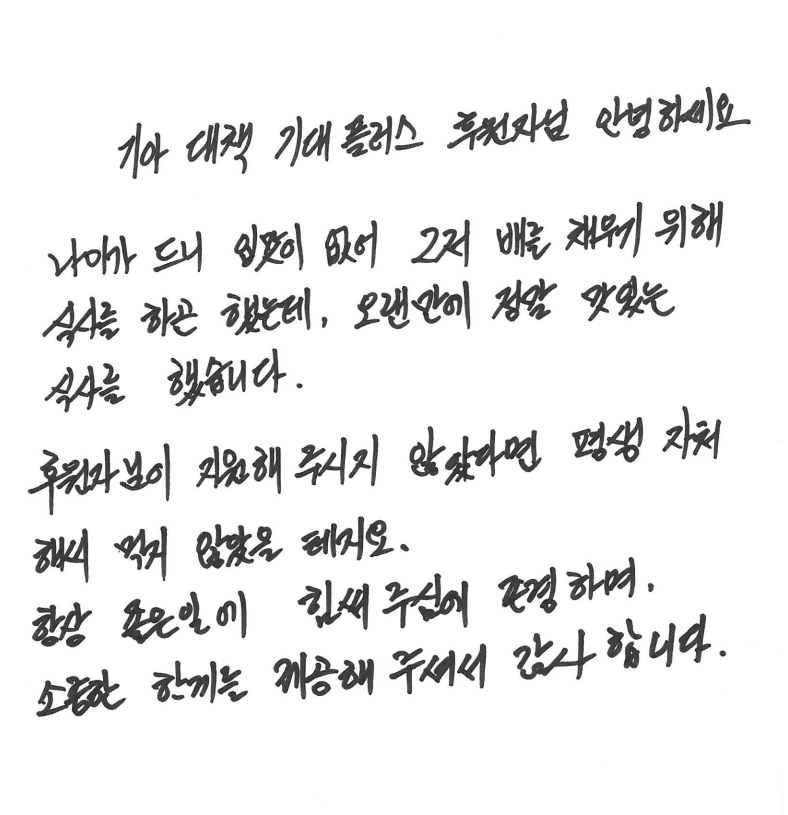 기아 대책 기대 플러스 후원자님 안녕하세요
나이가 드니 입맛이 없어 그저 배를 채우기 위해
식사를 하곤 했는데, 오랜만에 정말 맛있는
식사를 했습니다.
후원자님이 지원해 주시지 않았다면 평생 자처
해서 먹지 않았을 테지요.
항상 좋은일에 힘써 주심에 존경하며,
소중한 한끼를 제공해 주셔서 감사합니다.